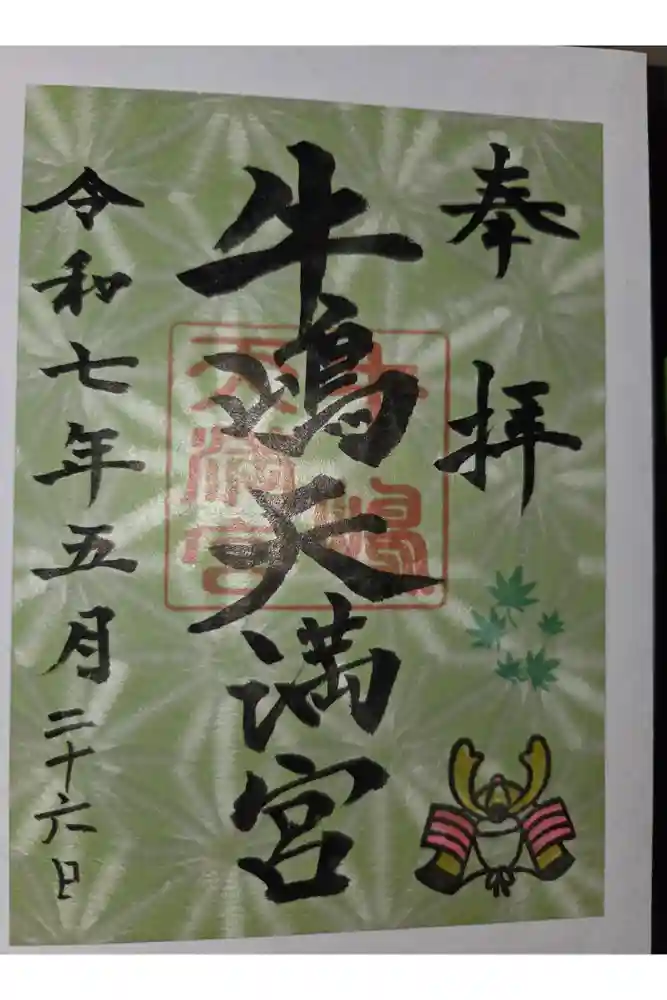 奉拝
牛嶋天満宮
牛嶋
天満宮
令和七年五月二十六日